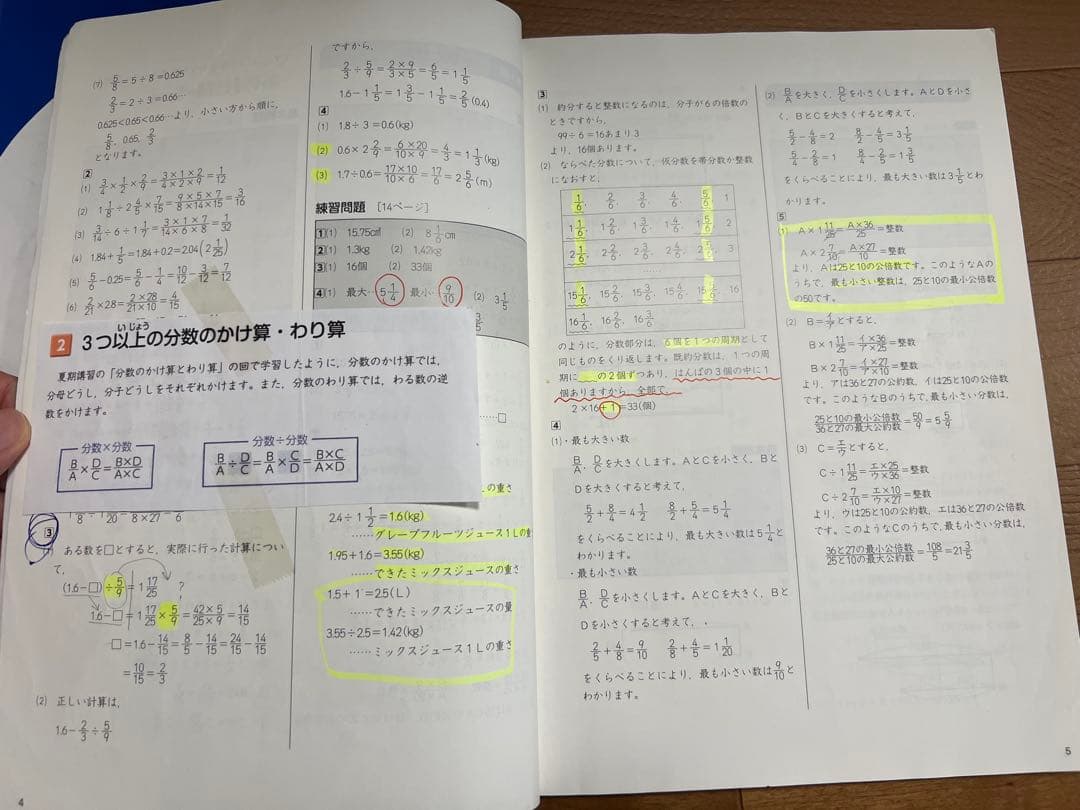 (7) 5/8=5÷8=0.625
2/3=2÷3=0.66…
0.625<0.65<0.66…より、小さい方から順に、
5/8, 0.65, 2/3
となります。
2
(1) 3/4×1/2×2/9=3×1×2/4×2×9=1/12
(2) 1 1/8÷2 4/5×7/15=9×5×7/8×14×15=3/16
(3) 3/14÷6÷1 1/7=3×1×7/14×6×8=1/32
(4) 1.84+1/5=1.84+0.2=2.04(2 1/25)
(5) 5/6-0.25=5/6-1/4=10/12-3/12=7/12
(6) 2/21×2.8=2×28/21×10=4/15
2 3つ以上の分数のかけ算・わり算
いじょう
夏期講習の「分数のかけ算とわり算」の回で学習したように、分数のかけ算では、
分母どうし、分子どうしをそれぞれかけます。また、分数のわり算では、わる数の逆
数をかけます。
分数×分数
B/A×D/C=B×D/A×C
分数÷分数
B/A÷D/C=B/A×C/D=B×C/A×D
3
ある数を□とすると、実際に行った計算につい
て、
(1.6-□)÷5/9=1 17/25 ?
1.6-□=1 17/25×5/9=42×5/25×9=14/15
□=1.6-14/15=8/5-14/15=24/15-14/15
=10/15=2/3
(2) 正しい計算は、
1.6-2/3÷5/9
4
ですから、
2/3÷5/9=2×9/3×5=6/5=1 1/5
1.6-1 1/5=1 3/5-1 1/5=2/5(0.4)
4
(1) 1.8÷3=0.6(kg)
(2) 0.6×2 2/9=6×20/10×9=4/3=1 1/3(kg)
(3) 1.7÷0.6=17×10/10×6=17/6=2 5/6(m)
練習問題 [14ページ]
1 (1) 15.75cm² (2) 8 1/6cm
2 (1) 1.3kg (2) 1.42kg
3 (1) 16個 (2) 33個
4 (1) 最大…5 1/4 最小…9/10 (2) 3 1/5
の重さ
2.4÷1 1/2=1.6(kg)
……グレープフルーツジュース1Lの重さ
1.95+1.6=3.55(kg)
……できたミックスジュースの重さ
1.5+1=2.5(L)
……できたミックスジュースの量
3.55÷2.5=1.42(kg)
……ミックスジュース1Lの重さ
3
(1) 約分すると整数になるのは、分子が6の倍数の
ときですから、
99÷6=16あまり3
より、16個あります。
(2) ならべた分数について、仮分数を帯分数か整数
になおすと、
1/6, 2/6, 3/6, 4/6, 5/6, 1
1 1/6, 1 2/6, 1 3/6, 1 4/6, 1 5/6, 2
2 1/6, 2 2/6, 2 3/6, 2 4/6, 2 5/6, 3
……
15 1/6, 15 2/6, 15 3/6, 15 4/6, 15 5/6, 16
16 1/6, 16 2/6, 16 3/6
のように、分数部分は、6個を1つの周期として
同じものをくり返します。既約分数は、1つの周
期に の2個ずつあり、はんぱの3個の中に1
個ありますから、全部で、
2×16+1=33(個)
4
(1)・最も大きい数
B/A, D/Cを大きくします。AとCを小さく、Bと
Dを大きくすると考えて、
5/2+8/4=4 1/2 8/2+5/4=5 1/4
をくらべることにより、最も大きい数は5 1/4と
わかります。
・最も小さい数
B/A, D/Cを小さくします。AとCを大きく、Bと
Dを小さくすると考えて、
2/5+4/8=9/10 2/8+4/5=1 1/20
をくらべることにより、最も小さい数は9/10と
わかります。
(2) B/Aを大きく、D/Cを小さくします。AとDを小さ
く、BとCを大きくすると考えて、
5/2-4/8=2 8/2-4/5=3 1/5
をくらべることにより、最も大きい数は3 1/5とわ
かります。
5
(1) A×1 11/25=A×36/25=整数
A×2 7/10=A×27/10=整数
より、Aは25と10の公倍数です。このようなAの
うちで、最も小さい整数は、25と10の最小公倍数
の50です。
(2) B=イ/アとすると、
B×1 11/25=イ×36/ア×25=整数
B×2 7/10=イ×27/ア×10=整数
より、アは36と27の公約数、イは25と10の公倍数
です。このようなBのうちで、最も小さい分数は、
25と10の最小公倍数/36と27の最大公約数=50/9=5 5/9
(3) C=エ/ウとすると、
C÷1 11/25=エ×25/ウ×36=整数
C÷2 7/10=エ×10/ウ×27=整数
より、ウは25と10の公約数、エは36と27の公倍数
です。このようなCのうちで、最も小さい分数は、
36と27の最小公倍数/25と10の最大公約数=108/5=21 3/5
5